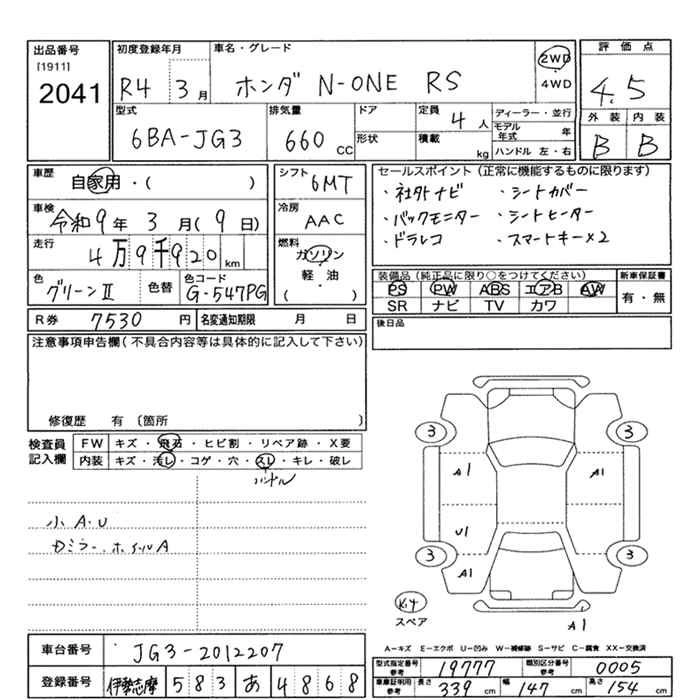 出品番号
[1911]
2041
初度登録年月
R4 3月
車名・グレード
ホンダ N-ONE RS
2WD
4WD
評価点
4.5
外装 内装
B B
型式
6BA-JG3
排気量
660 CC
ドア
形状
定員
4人
積載
kg
ディーラー・並行
モデル年式 年
ハンドル 左・右
車歴
自家用・( )
車検
令和9年3月(9日)
走行
4万9千920km
色
グリーンⅡ
色替
色コード
G-547PG
シフト
6MT
冷房
AAC
燃料
ガソリン
軽・油
( )
セールスポイント(正常に機能するものに限ります)
・社外ナビ ・シートカバー
・バックモニター ・シートヒーター
・ドラレコ ・スマートキー×2
装備品(純正品に限り○をつけてください)
PS PW ABS エアB AW
SR ナビ TV カワ
新車保証書
有・無
R券 7530円
名変通知期限 月 日
後日品
注意事項申告欄(不具合内容等は具体的に記入して下さい)
修復歴 有〔箇所 〕
検査員記入欄
FW キズ・飛石・ヒビ割・リペア跡・X要
内装 キズ・汚レ・コゲ・穴・スレ・キレ・破レ
ハンドル
小A・U
Dミラー、ホイルA
3 3
A1 A1
U1
3 3
A1
Kit
スペア
A1
A-キズ E-エクボ U-凹み W-補修跡 S-サビ C-腐食 XX-交換済
車台番号
JG3-2012207
登録番号
伊勢志摩 583 あ 4868
型式指定番号 参考 19777
類別区分番号 参考 0005
車庫証明用 参考 長さ 339cm 幅 147cm 高さ 154cm